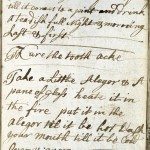 till it comes to a pint and drink
a tea dish full night & morning
last & first
To cure the tooth ache
Take a Little Alegor & A
pane of glass heate it in
the fire put it in the
alegor till it be hot hould
your mouth till it be Cold